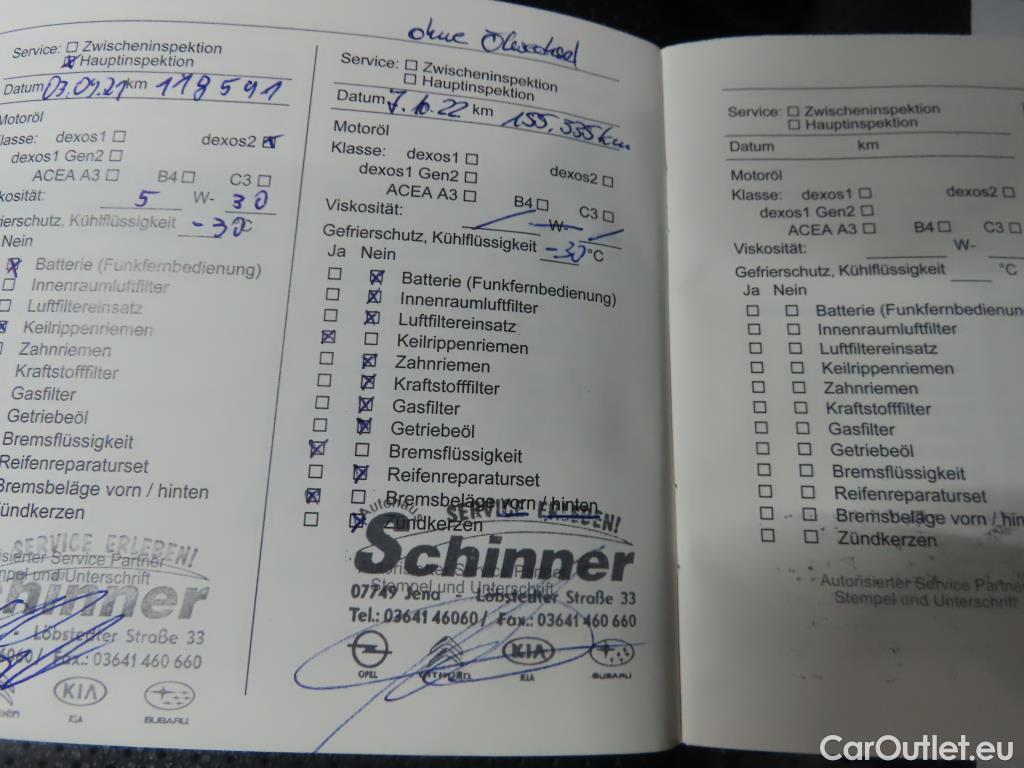 Service: Zwischeninspektion
Hauptinspektion
Datum 03.09.21 km 118591
Motoröl
lasse: dexos1 dexos2
dexos1 Gen2
ACEA A3 B4 C3
kosität: 5 W- 30
frierschutz, Kühlflüssigkeit -30°C
Nein
Batterie (Funkfernbedienung)
Innenraumluftfilter
Luftfiltereinsatz
Keilrippenriemen
Zahnriemen
Kraftstofffilter
Gasfilter
Getriebeöl
Bremsflüssigkeit
Reifenreparaturset
Bremsbeläge vorn / hinten
Zündkerzen
SERVICE ERLEBEN!
isierter Service Partner
mpel und Unterschrift
chinner
- Löbstedter Straße 33
46060/ Fax.: 03641 460 660
KIA
KIA SUBARU
ohne Ölwechsel
Service: Zwischeninspektion
Hauptinspektion
Datum 7.10.22 km 155.335km
Motoröl
Klasse: dexos1
dexos1 Gen2 dexos2
ACEA A3 B4 C3
Viskosität: W-
Gefrierschutz, Kühlflüssigkeit -30 °C
Ja Nein
Batterie (Funkfernbedienung)
Innenraumluftfilter
Luftfiltereinsatz
Keilrippenriemen
Zahnriemen
Kraftstofffilter
Gasfilter
Getriebeöl
Bremsflüssigkeit
Reifenreparaturset
Bremsbeläge vorn / hinten
Zündkerzen
Autohaus SERVICE ERLEBEN!
Schinner
Autorisierter Service Partner
Stempel und Unterschrift
07749 Jena - Löbstedter Straße 33
Tel.: 03641 46060/ Fax.: 03641 460 660
KIA
OPEL KIA SUBARU
Service: Zwischeninspektion
Hauptinspektion
Datum km
Motoröl
Klasse: dexos1 dexos2
dexos1 Gen2
ACEA A3 B4 C3
Viskosität: W-
Gefrierschutz, Kühlflüssigkeit °C
Ja Nein
Batterie (Funkfernbedienun
Innenraumluftfilter
Luftfiltereinsatz
Keilrippenriemen
Zahnriemen
Kraftstofffilter
Gasfilter
Getriebeöl
Bremsflüssigkeit
Reifenreparaturset
Bremsbeläge vorn / hin
Zündkerzen
Autorisierter Service Partner
Stempel und Unterschrift
CarOutlet.eu